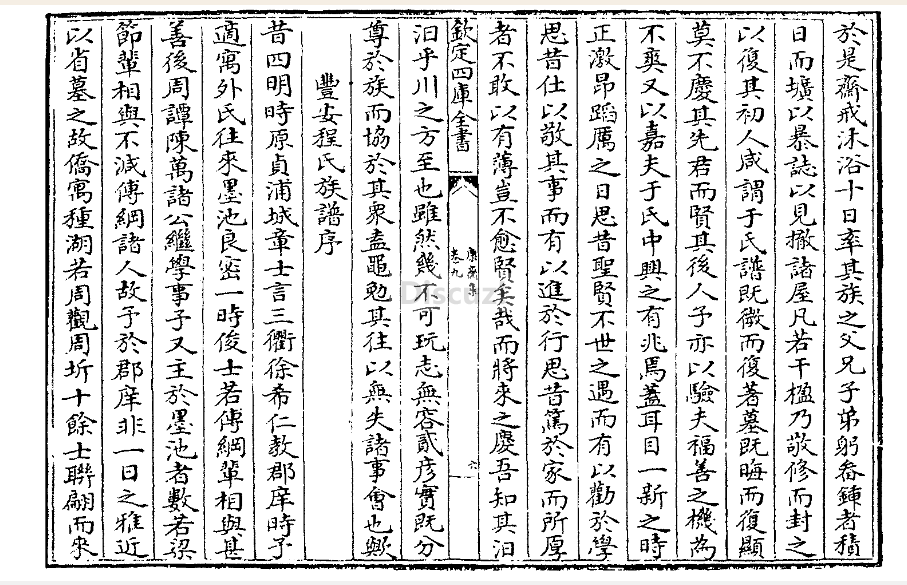 於是齋戒沐浴十日率其族之父兄子弟躬畚鍾者積
日而壙以暴誌以見撤諸屋凡若干楹乃敬修而封之
以復其初人咸謂于氏譜既微而復著墓既晦而復顯
莫不慶其先君而賢其後人予亦以驗夫福善之機為
不爽又以嘉夫于氏中興之有兆焉蓋耳目一新之時
正激昂蹈厲之日思昔聖賢不世之遇而有以勸於學
思昔仕以敬其事而有以進於行思昔篤於家而所厚
者不敢以有薄豈不愈賢矣哉而將來之慶吾知其汩
欽定四庫全書
康齋集
卷九
六
汩乎川之方至也雖然幾不可玩志無容貳彦實既分
尊於族而協於其衆盍黽勉其往以無失諸事會也歟
豐安程氏族譜序
昔四明時原貞浦城章士言三衢徐希仁教郡庠時予
適寓外氏往來墨池良密一時俊士若傅綱輩相與甚
善後周譚陳萬諸公繼學事予又主於墨池者數若梁
節輩相與不減傅綱諸人故予於郡庠非一日之雅近
以省墓之故僑寓種湖若周觀周圻十餘士聯翩而來
Discuz!